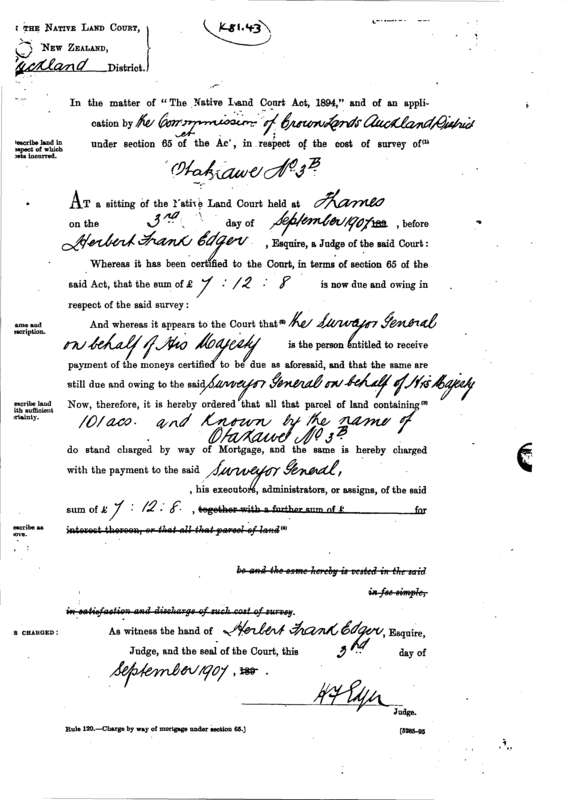 THE NATIVE LAND COURT,
K81.43
NEW ZEALAND,
Auckland District.
In the matter of "The Native Land Court Act, 1894," and of an appli-
cation by the Commission of Crown Lands Auckland District
escribe land in
respect of which
costs incurred.
under section 65 of the Act, in respect of the cost of survey of(1)
Otakawe No 3B
AT a sitting of the Native Land Court held at Thames
on the 3rd day of September 1907 189 , before
Herbert Frank Edger , Esquire, a Judge of the said Court:
Whereas it has been certified to the Court, in terms of section 65 of the
said Act, that the sum of £ 7 : 12 : 8 is now due and owing in
respect of the said survey:
ame and
scription.
And whereas it appears to the Court that(2) the Surveyor General
on behalf of His Majesty is the person entitled to receive
payment of the moneys certified to be due as aforesaid, and that the same are
still due and owing to the said Surveyor General on behalf of His Majesty
escribe land
ith sufficient
rtainty.
Now, therefore, it is hereby ordered that all that parcel of land containing(3)
101 acs. and known by the name of
Otakawe No 3B
do stand charged by way of Mortgage, and the same is hereby charged
with the payment to the said Surveyor General,
, his executors, administrators, or assigns, of the said
sum of £ 7 : 12 : 8. , together with a further sum of £ for
escribe as
ove.
interest thereon, or that all that parcel of land(4)
be and the same hereby is vested in the said
in fee simple,
in satisfaction and discharge of such cost of survey.
S CHARGED:
As witness the hand of Herbert Frank Edger, Esquire,
Judge, and the seal of the Court, this 3rd day of
September 1907 , 189 .
H F Edger
Judge.
Rule 120.—Charge by way of mortgage under section 65.]
[5385-95